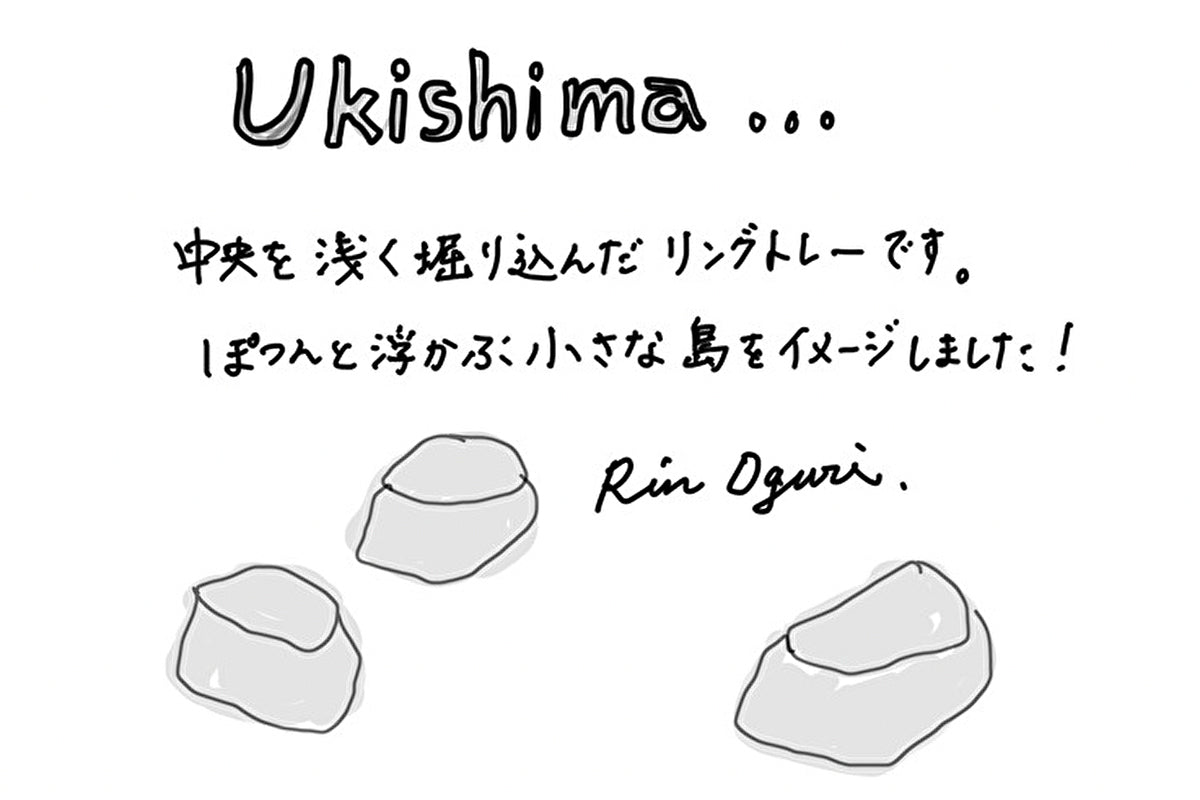 Ukishima...
中央を浅く堀り込んだリングトレーです。
ぽつんと浮かぶ小さな島をイメージしました!
Rin Oguri.